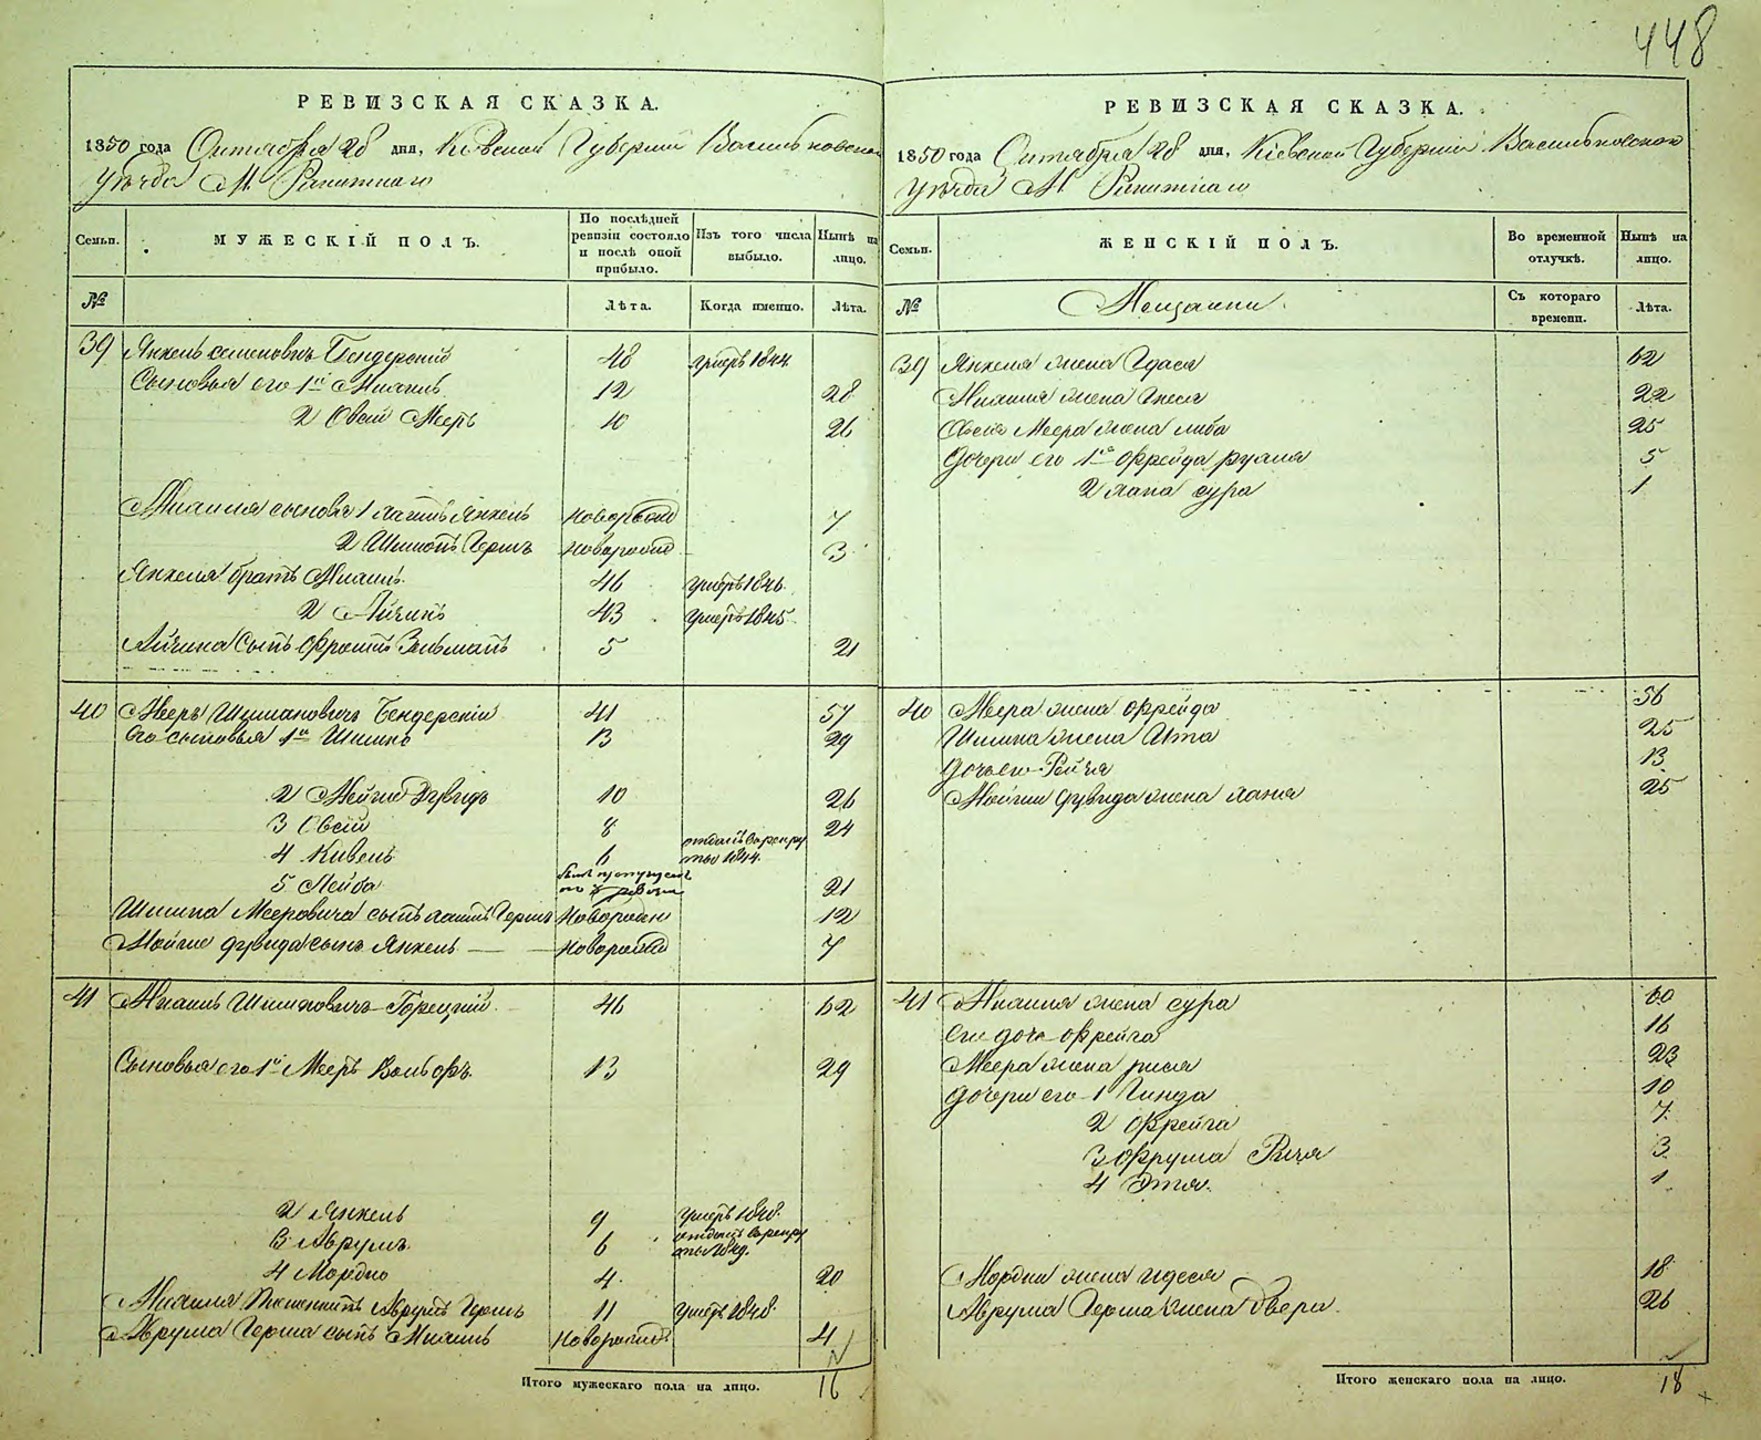 448
РЕВИЗСКАЯ СКАЗКА.
1850 года Октября 28 дня, Кіевской Губерніи Васильковскаго
Уѣзда М. Ракитнаго
Семьи.
МУЖЕСКІЙ ПОЛЪ.
По послѣдней ревизіи состояло и послѣ оной прибыло.
Изъ того числа выбыло.
Нынѣ на лицо.
№
Лѣта.
Когда именно.
Лѣта.
39 Янкель Семеновичъ Бендерскій 48 Умеръ 1844
Сыновья его 1й Михаилъ 12 28
2 Овсій Мееръ 10 26
Михаила сыновья 1 Янкель новорожд 7
2 Гершъ новорожд 3
Янкеля братъ 46 Умеръ 1846
2 Айзикъ 43 Умеръ 1845
Айзика сынъ Зельманъ 5 21
40 Мееръ Шимановичъ Бендерскій 41 57
Его сыновья 1й Шимко 13 29
2 Мойше Дувидъ 10 26
3 Овсій 8 24
4 Кивель 6 отданъ въ рекруты 1844
5 Лейба былъ пропущенъ по 8 ревизіи 21
Шимка Мееровича сынъ Гершъ Новорожден 12
Мойше Дувида сынъ Янкель Новорожд 7
41 Шимковичъ Горецкій 46 62
Сыновья его 1й Мееръ Вольфъ 13 29
2 Янкель 9 Умеръ 1848
3 Аврумъ 6 отданъ въ рекруты 1849.
4 Мордко 4 20
Племянникъ Аврумъ Гершъ 11 Умеръ 1848
Аврума Герша сынъ Новорожд 4
Итого мужескаго пола на лицо. 16
РЕВИЗСКАЯ СКАЗКА.
1850 года Октября 28 дня, Кіевской Губерніи Васильковскаго
Уѣзда М. Ракитнаго
Семьи.
ЖЕНСКІЙ ПОЛЪ.
Во временной отлучкѣ.
Нынѣ на лицо.
№
Мещанки
Съ котораго времени.
Лѣта.
39 Янкеля жена 62
жена 22
Овсія Меера жена Либа 25
Дочери его 1я Фрейда 5
2 Хана Сура 1
40 Меера жена Фрейда 56
Шимка жена 25
Дочь его 13
Мойши Дувида жена Хана 25
41 жена Сура 60
Его дочь Фрейга 16
Меера жена 23
Дочери его 1 Гинда 10
2 Фрейга 7
3 Фрума 3
4 Этя 1
Мордка жена Идеся 18
Аврума Герша жена Двера 26
Итого женскаго пола на лицо. 18